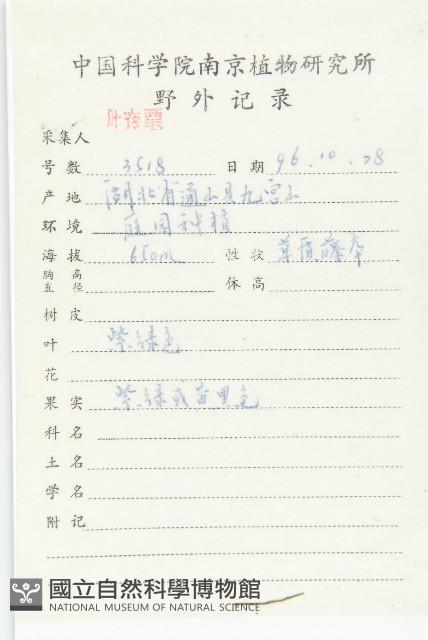 中国科学院南京植物研究所
野外记录
采集人
号数 3518 日期 96.10.28
产地 湖北省通山县九宫山
环境 庭园种植
海拔 650m 性状 草质藤本
胸高直径 体高
树皮
叶 紫绿色
花
果实 紫绿或黄黑色
科名
土名
学名
附记
國立自然科學博物館
NATIONAL MUSEUM OF NATURAL SCIENCE